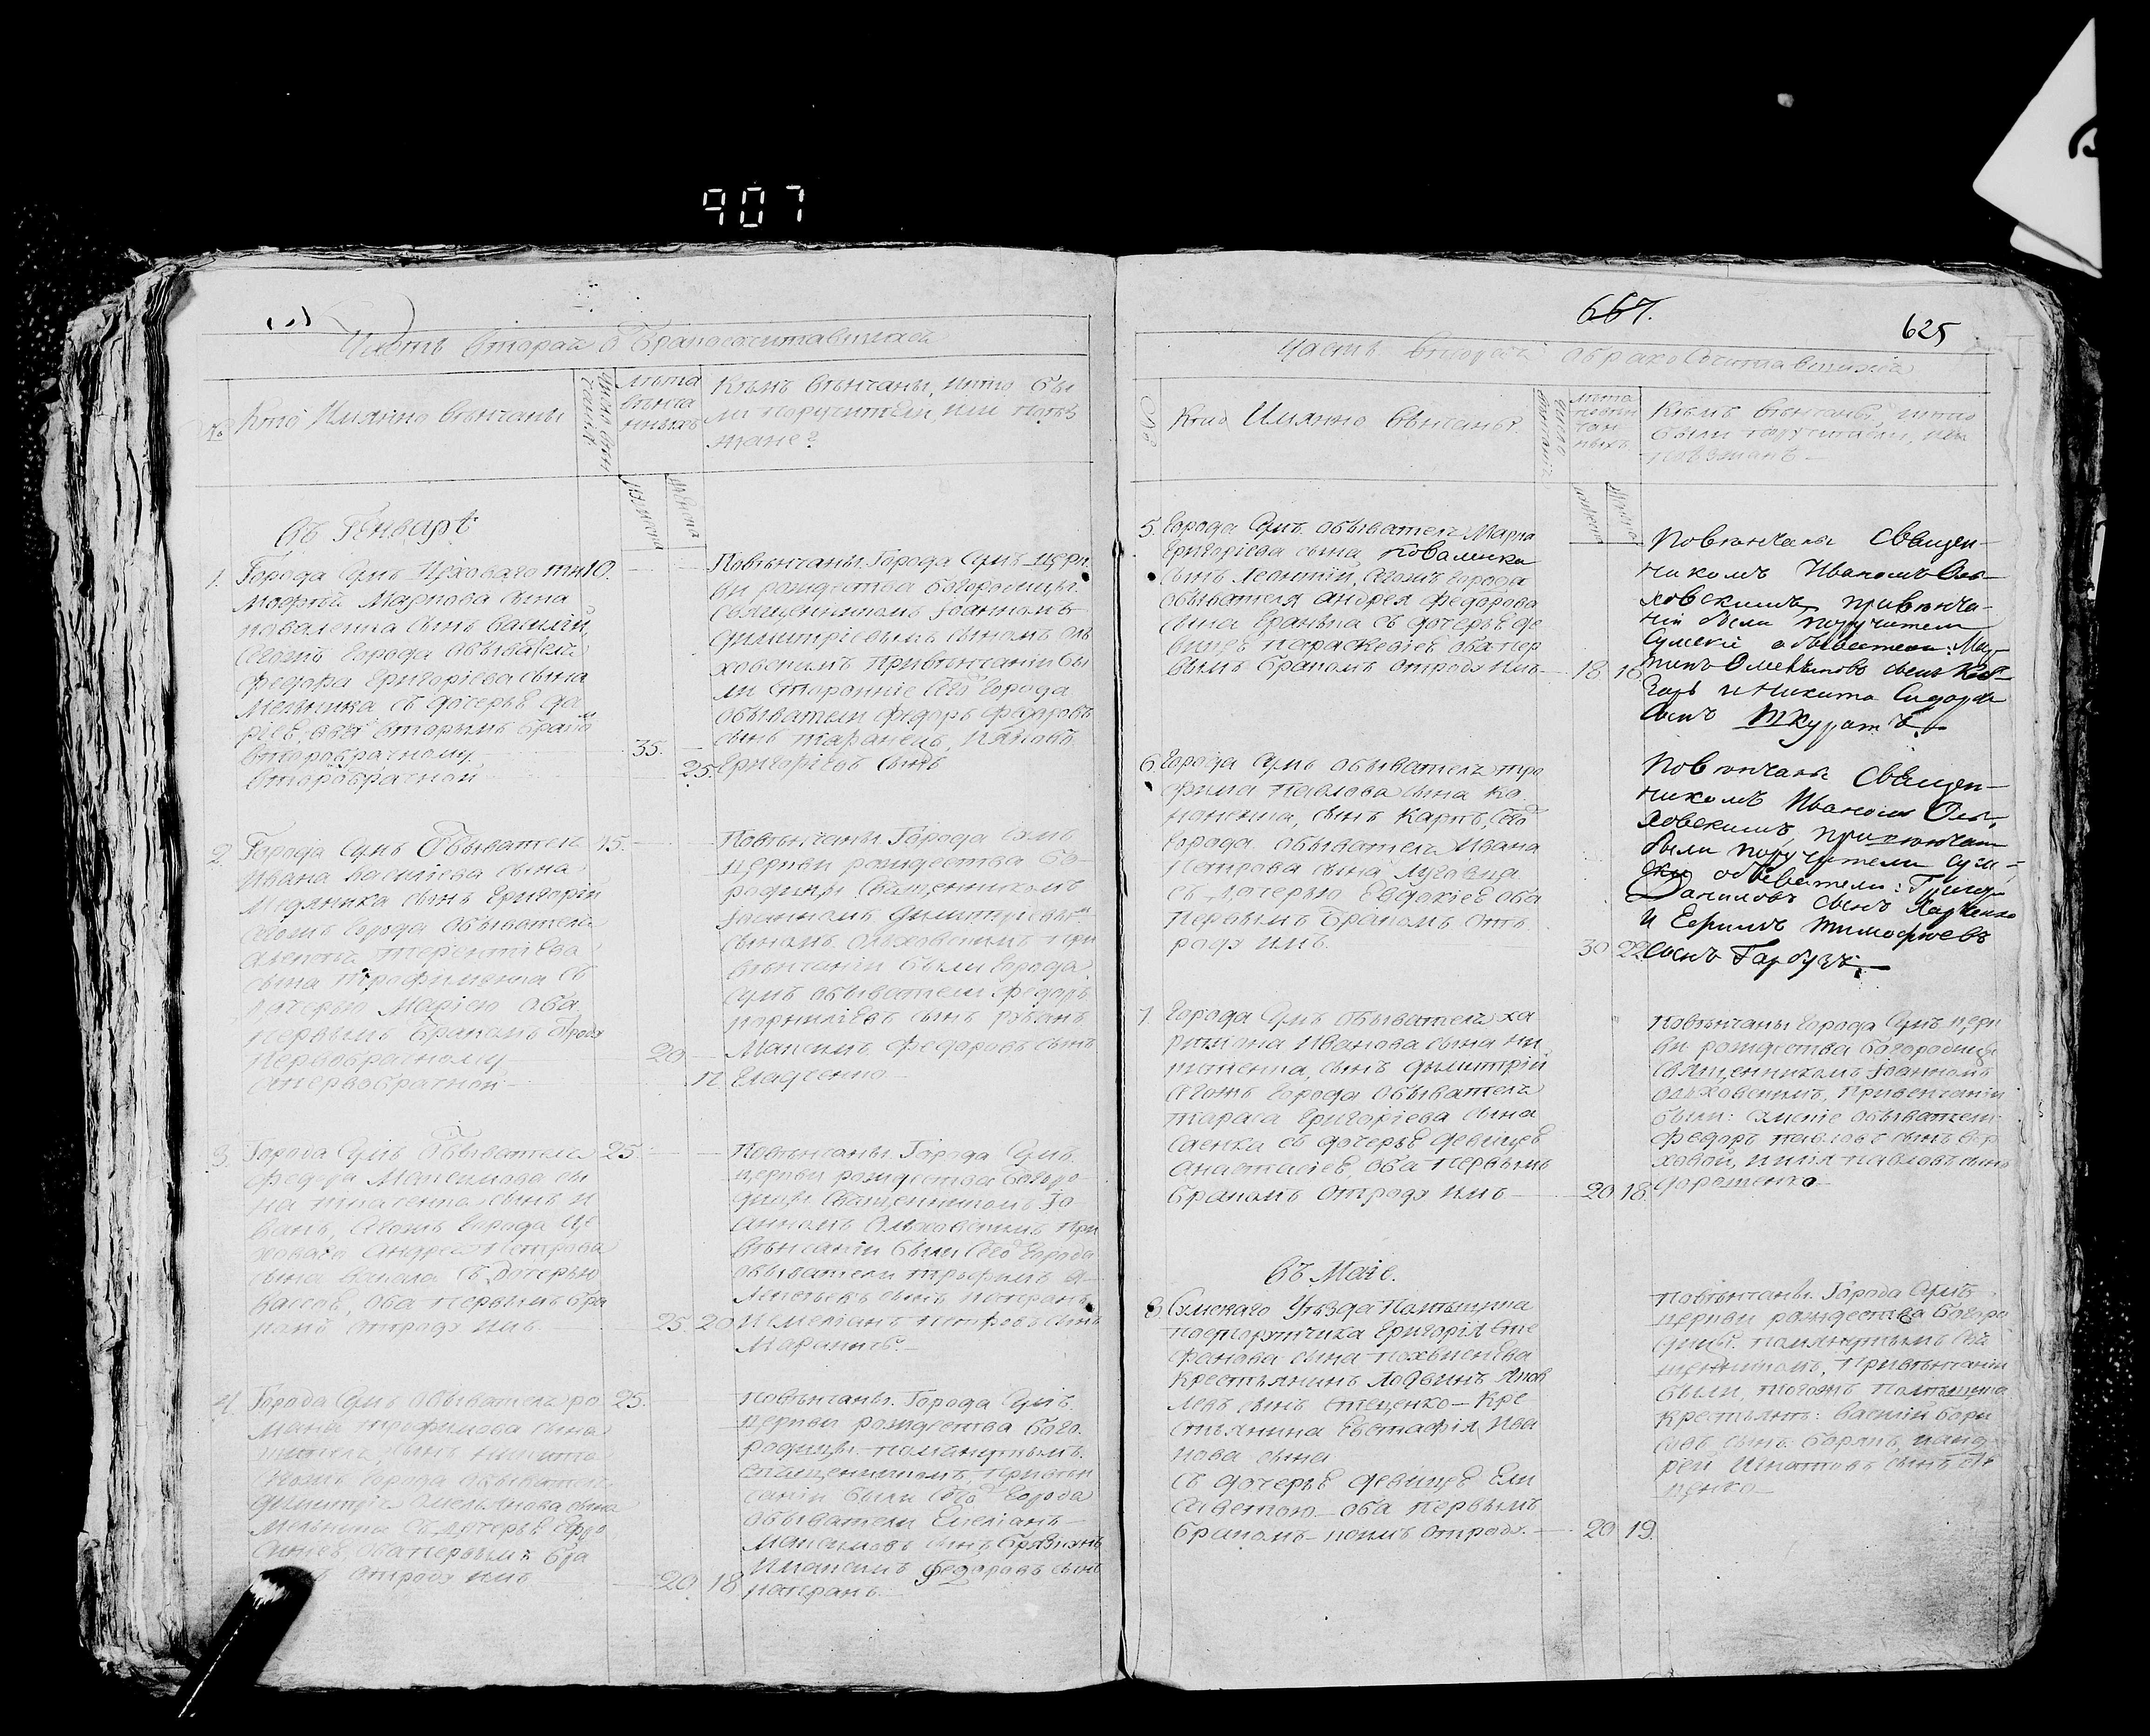 907
Часть вторая о бракосочитавшихся
№
Кто Имянно венчаны
число вен
чания
лѣта
венча
нныхъ
Кѣмъ венчаны, икто бы
ли поручители, или поѣз
жане?
мужеска
женска
въ Генварѣ
1. Города Сумъ Цѣховаго ти 10.
мофѣя Маркова сына
коваленка сынъ василий,
Сегожъ города обывателя
Федора Григорїева сына
Мельника съ дочерьѣ да
рїеѣ, оба вторымъ бракомъ
второбрачному 35.
второбрачной 25.
Повѣнчаны Города Сумъ церк
ви рождества богородицы
Священникомъ Іоанномъ
Димитрїевымъ сыномъ оль
ховскимъ Привѣнчанїи бы
ли стороннїе сего города
обыватели федоръ федоровъ
сынъ таранецъ, ияковъ
Григорїевъ сынъ
2. Города Сумъ Обывателя 15.
Ивана василїева сына
Мѣдяника сынъ Григорїй
сегожъ города Обывателя
Терентїева
сына Трофименка съ
дочерью Марїею оба
первымъ бракомъ отроду
первобрачному 20
ипервобрачной 17
Повѣнчаны Города Сумъ
церкви рождества бо
родицы Священникомъ
Іоанномъ Димитрїевымъ
сыномъ Ольховскимъ при
вѣнчанїи были города
Сумъ обыватели федоръ
корнилїевъ сынъ рубанъ
Максимъ федоровъ сынъ
Гладченко
3. Города Сумъ Обывателя 25.
Федора Максимова сы
на ткаченка сынъ И
ванъ, сегожъ города це
ховаго Андрея Петрова
сына съ дочерью
оба первымъ бра
комъ отроду имъ 25. 20
Повѣнчаны Города Сумъ
церкви рождества богоро
дицы Священникомъ Іо
анномъ Ольховскимъ при
вѣнчанїи были сего города
обыватели трофимъ а
сынъ
и Емелїанъ петровъ сынъ
4 Города Сумъ обывателя ро 25.
мана трофимова сына
сынъ никита
сегожъ города обывателя
димитрїя Омельянова сына
Мельника съ дочерьѣ Евдо
оба первымъ бра
отроду имъ 20. 18
повѣнчаны Города Сумъ
церкви рождества бого
родицы помянутымъ
священникомъ, привѣн
чанїи были сего города
обыватели Емелїанъ
Максимовъ сынъ
имаксимъ федоровъ сынъ
667.
625
Часть вторая обракосочитавшихся
№
Кто Имянно венчаны.
число
венчания
лѣта
повен
чан
ныхъ
Кѣмъ венчаны икто
были поручители, или
поѣзжанѣ
мужеска
женска
5. Города Сумъ обывателя Марка
Григорїева сына коваленка
сынъ Леонтїй, сегожъ города
обывателя андрея федорова
сына съ дочерьѣ де
вицеѣ параскевїеѣ оба пер
вымъ бракомъ отроду имъ 18 16
Повѣнчаны Священ
никомъ Иваномъ Оль
ховскимъ, привѣнча
нїи были поручители
Сумскїе обыватели: Мар
тинъ Омельяновъ сынъ
и Никита Сидоровъ
сынъ Шкуратъ.
6. Города Сумъ обывателя тро
фима павлова сына ко
сынъ Карпъ, сего
города обывателя Ивана
Петрова сына луговца
съ дочерью Евдокїеѣ оба
первымъ бракомъ отъ
роду имъ 30 22
Повѣнчаны Священ
никомъ Иваномъ Оль
ховскимъ, привѣнчанїи
были поручители сум
скїи обыватели: Григорїй
Даниловъ сынъ Харченко
и Ефримъ тимофѣевъ
сынъ Гарбузъ.
7. Города Сумъ обывателя ха
ритона Иванова сына ни
китенка, сынъ димитрїй
сегожъ города обывателя
тараса Григорїева сына
саенка съ дочерьѣ девицеѣ
анастасїеѣ, оба первымъ
бракомъ отроду имъ 20. 18.
Повѣнчаны города Сумъ церк
ви рождества богородицы
священникомъ Іоанномъ
ольховскимъ, Привенчанїи
были: сумскїе обыватели
федоръ павловъ сынъ вер
ховой, иилїя павловъ сынъ
дорошенко
въ Маїе.
8. Сумскаго уѣзда Помѣщика
поторутчика Григорїя Сте
фанова сына похвиснева
крестьянинъ логвинъ Яков
левъ сынъ стеценко – кре
стьянина Евстафїя Ива
нова сына
съ дочерьѣ девицеѣ Ели
саветою оба первымъ
бракомъ коимъ отроду. 20 19.
повѣнчаны Города Сумъ
церкви рождества богоро
дицы помянутымъ свя
щенникомъ, Привѣнчанїи
были тогожъ помѣщика
крестьянѣ: василїй бори
совъ сынъ иАнд
рей Игнатовъ сынъ сте
ценко